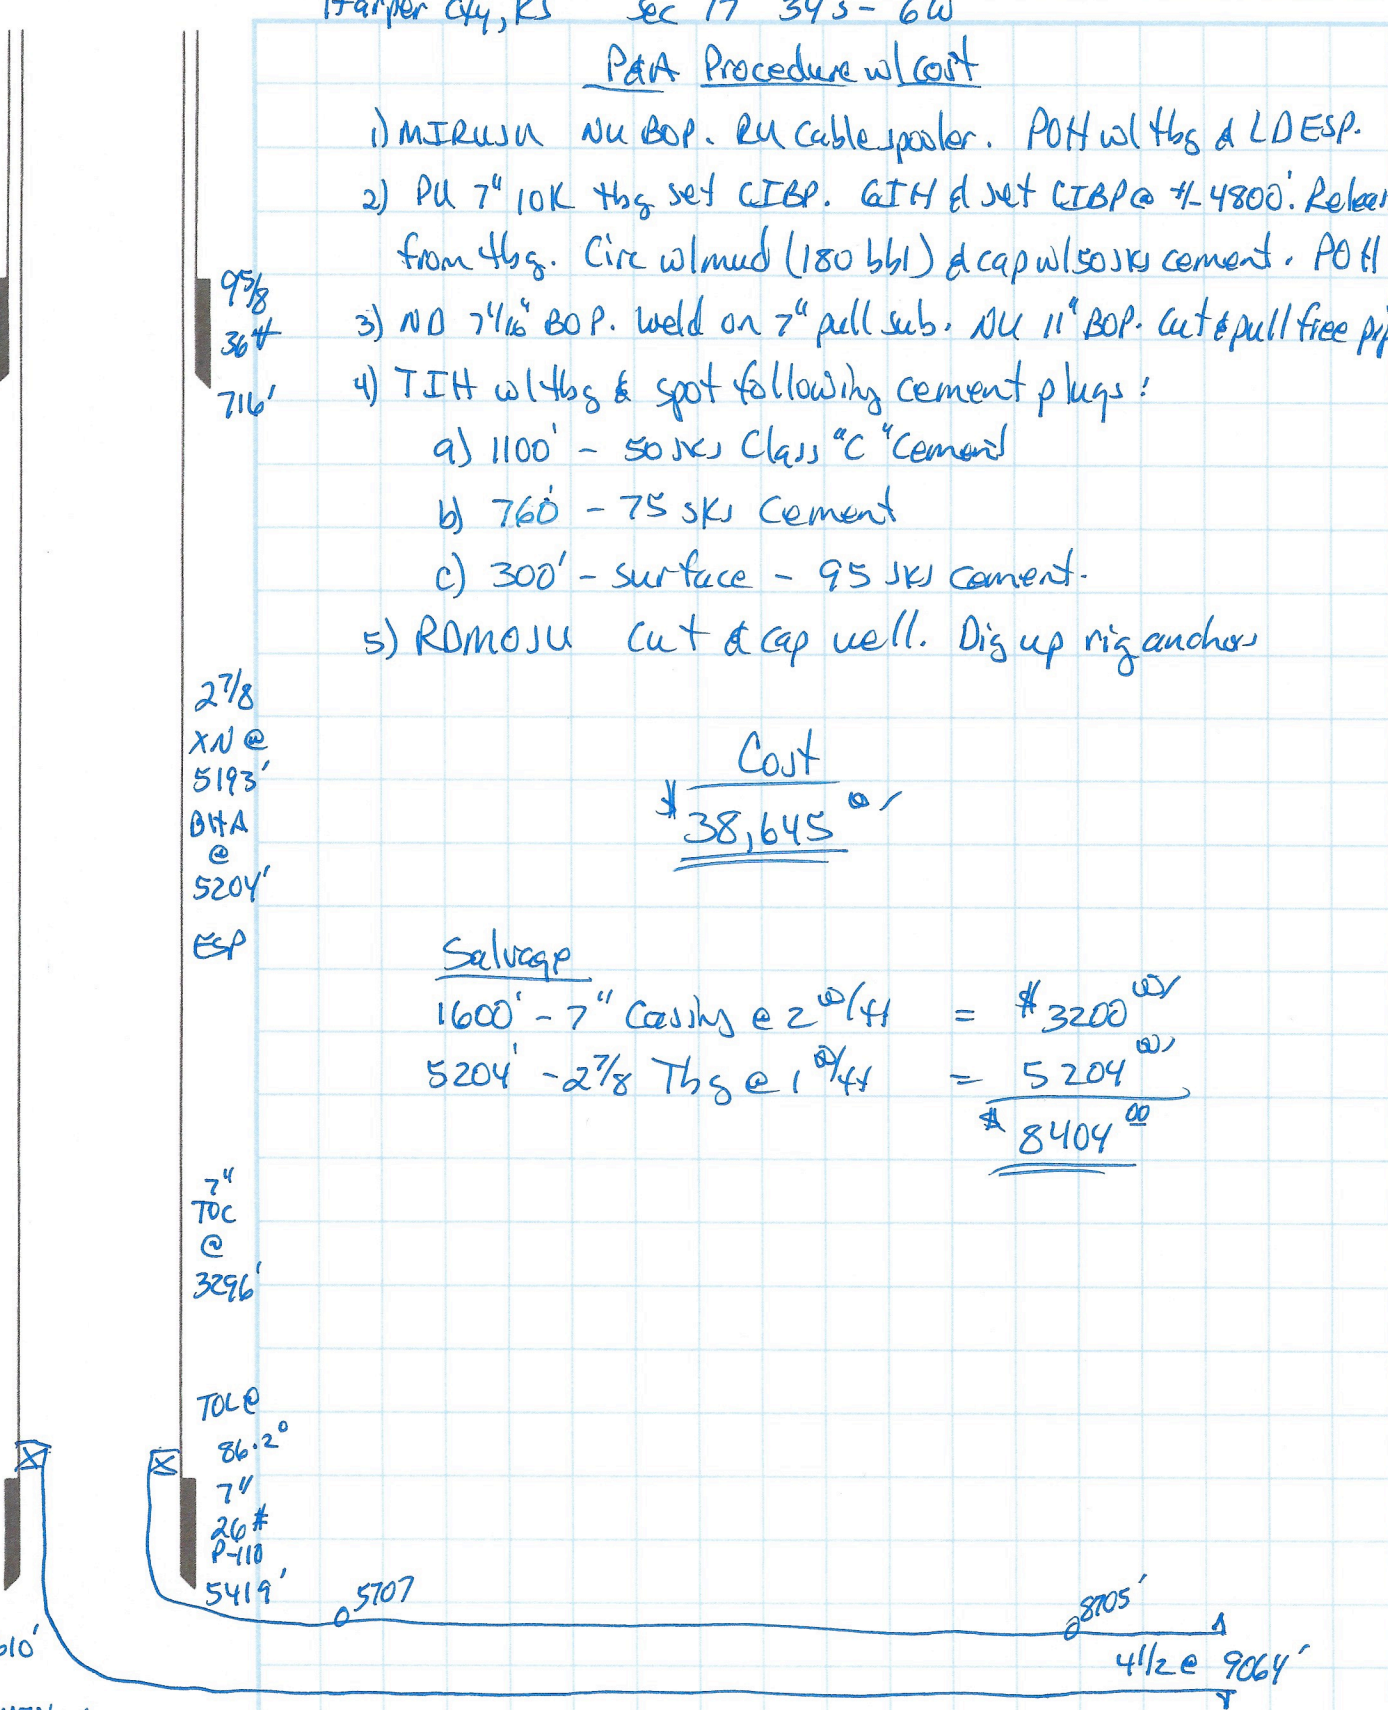 Harper Cty, KS Sec 17 34S - 6W
P&A Procedure w/ cost
1) MIRUSU NU BOP. RU Cable spooler. POH w/ tbg & LD ESP.
2) PU 7" 10K tbg set CIBP. GIH & set CIBP @ +/- 4800'.
from tbg. Circ w/ mud (180 bbl) & cap w/ 50 sks cement. POH
3) ND 7 1/16" BOP. Weld on 7" pull sub. NU 11" BOP. Cut & pull free
4) TIH w/ tbg & spot following cement plugs:
a) 1100' - 50 sks Class "C" Cement
b) 760' - 75 sks Cement
c) 300' - surface - 95 sks cement.
5) RDMOSU Cut & cap well. Dig up rig anchors
9 5/8
36#
716'
2 7/8
XN @
5193'
BHA
@
5204'
ESP
Cost
$38,645 00/
Salvage
1600' - 7" Casing @ 2 00/ft = $3200 00/
5204' - 2 7/8 Tbg @ 1 00/ft = 5204 00/
$8404 00
7"
TOC
@
3296'
TOL @
86.2°
7"
26#
P-110
5419'
5707
8705'
4 1/2 @ 9064'